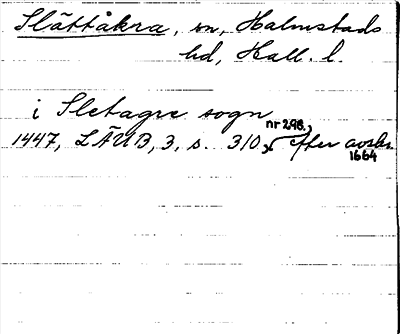 Slättåkra, sn, Halmstads
hd, Hall. l.
i Sletagre sogn
1447, LÄUB, 3, s. 310, nr 298, efter avskr.
1664